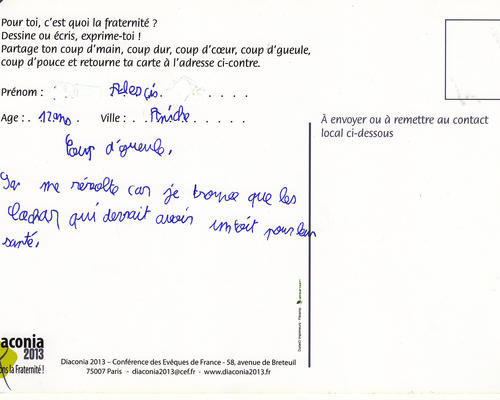 Pour toi, c'est quoi la fraternité ?
Dessine ou écris, exprime-toi !
Partage ton coup d'main, coup dur, coup d'cœur, coup d'gueule,
coup d'pouce et retourne ta carte à l'adresse ci-contre.
Prénom : Alexis. . . . .
Age : . 12 ans . Ville : . . Aniche . . . . .
À envoyer ou à remettre au contact
local ci-dessous
Coup d'gueule,
me révolte car je trouve que les
qui devrait avoir un toit pour leur
santé.
aconia
2013
ons la Fraternité !
Diaconia 2013 – Conférence des Evêques de France - 58, avenue de Breteuil
75007 Paris - diaconia2013@cef.fr - www.diaconia2013.fr